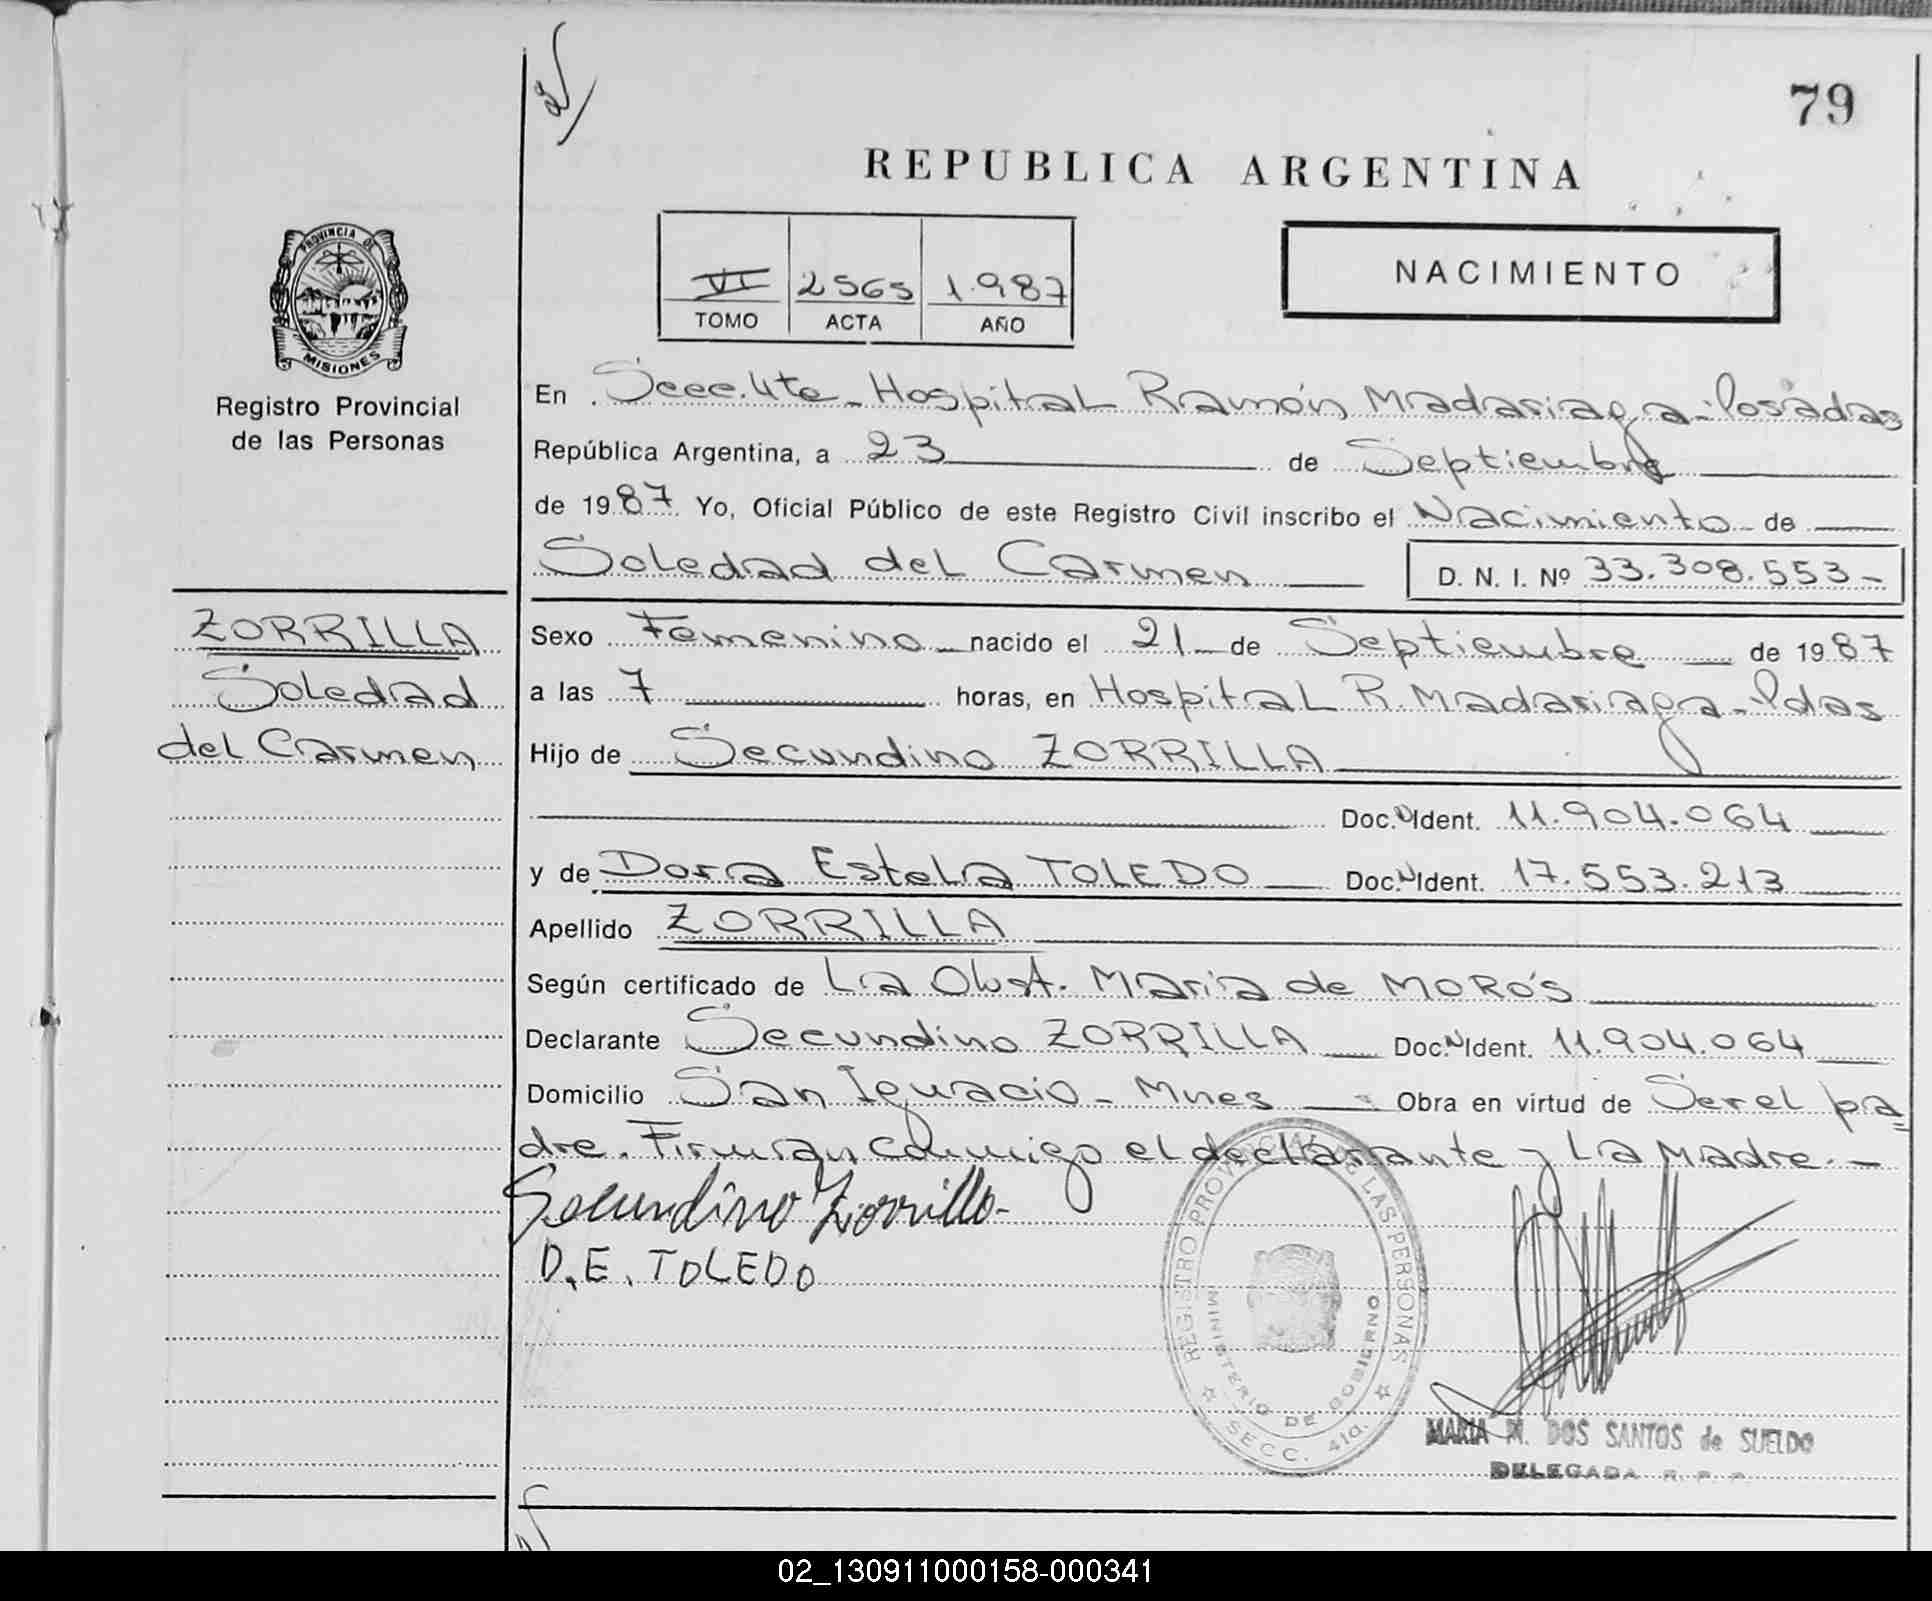 79
REPUBLICA ARGENTINA
PROVINCIA DE
MISIONES
Registro Provincial
de las Personas
VI 2565 1.987
TOMO ACTA AÑO
NACIMIENTO
En Secc. 4ta - Hospital Ramón Madariaga - Posadas
República Argentina, a 23 de Septiembre
de 1987 Yo, Oficial Público de este Registro Civil inscribo el Nacimiento de
Soledad del Carmen D. N. I. Nº 33.308.553-
ZORRILLA
Soledad
del Carmen
Sexo Femenino nacido el 21 de Septiembre de 1987
a las 7 horas, en Hospital R. Madariaga - Pdas
Hijo de Secundino ZORRILLA
Doc. N Ident. 11.904.064
y de Dora Estela TOLEDO Doc. N Ident. 17.553.213
Apellido ZORRILLA
Según certificado de La Obst. María de MORO's
Declarante Secundino ZORRILLA Doc. N Ident. 11.904.064
Domicilio San Ignacio - Mnes Obra en virtud de Ser el pa=
dre. Firman conmigo el declarante y La Madre.-
Secundino Zorrilla-
D.E. TOLEDO
REGISTRO PROVINCIAL DE LAS PERSONAS
MINISTERIO DE GOBIERNO
SECC. 4ta.
MARIA M. DOS SANTOS de SUELDO
DELEGADA R. P. P.
02_130911000158-000341